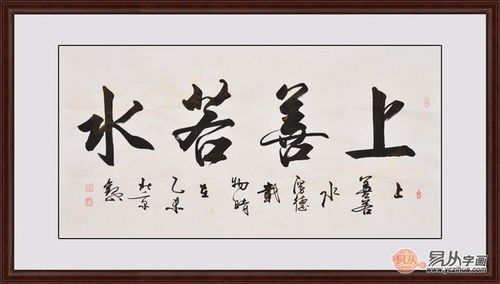 上善若水
上善若水厚德載物時在乙未北京
易从字画
www.yczihua.com